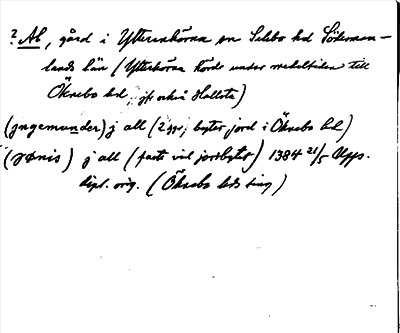 ? Al, gård i Ytterenhörna sn Selebo hd Söderman-
lands län (Ytterhörna hörde under medeltiden till
Öknebo hd, jfr också Hallsta)
(jngemunder) j all (2 ggr, byter jord i Öknebo hd)
(jønis) j all (fasti vid jordbytet) 1384 21/5 Upps.
dipl. orig. (Öknebo hds ting)